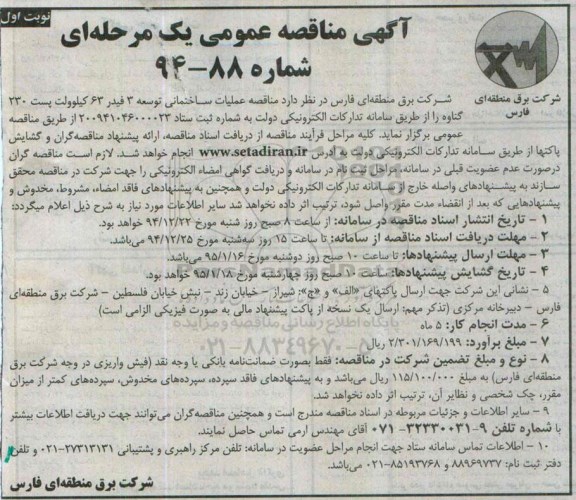 نوبت اول
آگهی مناقصه عمومی یک مرحله‌ای
شماره ۸۸-۹۴
شرکت برق منطقه‌ای فارس
شرکت برق منطقه‌ای فارس در نظر دارد مناقصه عملیات ساختمانی توسعه ۳ فیدر ۶۳ کیلوولت پست ۲۳۰
گناوه را از طریق سامانه تدارکات الکترونیکی دولت به شماره ثبت ستاد ۲۰۰۹۴۱۰۴۶۰۰۰۰۲۳ از طریق مناقصه
عمومی برگزار نماید. کلیه مراحل فرآیند مناقصه از دریافت اسناد مناقصه، ارائه پیشنهاد مناقصه‌گران و گشایش
پاکتها از طریق سامانه تدارکات الکترونیکی دولت به آدرس www.setadiran.ir انجام خواهد شد. لازم است مناقصه گران
درصورت عدم عضویت قبلی در سامانه، مراحل ثبت نام در سامانه و دریافت گواهی امضاء الکترونیکی را جهت شرکت در مناقصه محقق
سازند به پیشنهادهای واصله خارج از سامانه تدارکات الکترونیکی دولت و همچنین به پیشنهادهای فاقد امضاء، مشروط، مخدوش و
پیشنهادهایی که بعد از انقضاء مدت مقرر واصل شود، ترتیب اثر داده نخواهد شد سایر اطلاعات مورد نیاز به شرح ذیل اعلام میگردد:
۱ - تاریخ انتشار اسناد مناقصه در سامانه: از ساعت ۸ صبح روز شنبه مورخ ۹۴/۱۲/۲۲ خواهد بود.
۲ - مهلت دریافت اسناد مناقصه از سامانه: تا ساعت ۱۵ روز سه‌شنبه مورخ ۹۴/۱۲/۲۵ می‌باشد.
۳ - مهلت ارسال پیشنهادها: تا ساعت ۱۰ صبح روز دوشنبه مورخ ۹۵/۱/۱۶ می‌باشد.
۴ - تاریخ گشایش پیشنهادها: ساعت ۱۰ صبح روز چهارشنبه مورخ ۹۵/۱/۱۸ خواهد بود.
۵ - نشانی این شرکت جهت ارسال پاکتهای «الف» و «ج»: شیراز - خیابان زند - نبش خیابان فلسطین - شرکت برق منطقه‌ای
فارس - دبیرخانه مرکزی (تذکر مهم: ارسال یک نسخه از پاکت پیشنهاد مالی به صورت فیزیکی الزامی است)
۶ - مدت انجام کار: ۵ ماه
پایگاه اطلاع رسانی مناقصه و مزایده
۷ - مبلغ برآورد: ۲/۳۰۱/۱۶۹/۱۹۹ ریال
۰۲۱-۸۸۳۴۹۶۷۰-۵
۸ - نوع و مبلغ تضمین شرکت در مناقصه: فقط بصورت ضمانت‌نامه بانکی یا وجه نقد (فیش واریزی در وجه شرکت برق
منطقه‌ای فارس) به مبلغ ۱۱۵/۱۰۰/۰۰۰ ریال می‌باشد و به پیشنهادهای فاقد سپرده، سپرده‌های مخدوش، سپرده‌های کمتر از میزان
مقرر، چک شخصی و نظایر آن، ترتیب اثر داده نخواهد شد.
۹ - سایر اطلاعات و جزئیات مربوطه در اسناد مناقصه مندرج است و همچنین مناقصه‌گران می‌توانند جهت دریافت اطلاعات بیشتر
با شماره تلفن ۹-۳۲۳۳۰۰۳۱-۰۷۱ آقای مهندس ارمی تماس حاصل نمایند.
۱۰ - اطلاعات تماس سامانه ستاد جهت انجام مراحل عضویت در سامانه: تلفن مرکز راهبری و پشتیبانی ۲۷۳۱۳۱۳۱-۰۲۱ و تلفن
دفتر ثبت نام: ۸۸۹۶۹۷۳۷ و ۸۵۱۹۳۷۶۸-۰۲۱ می‌باشد.
شرکت برق منطقه‌ای فارس